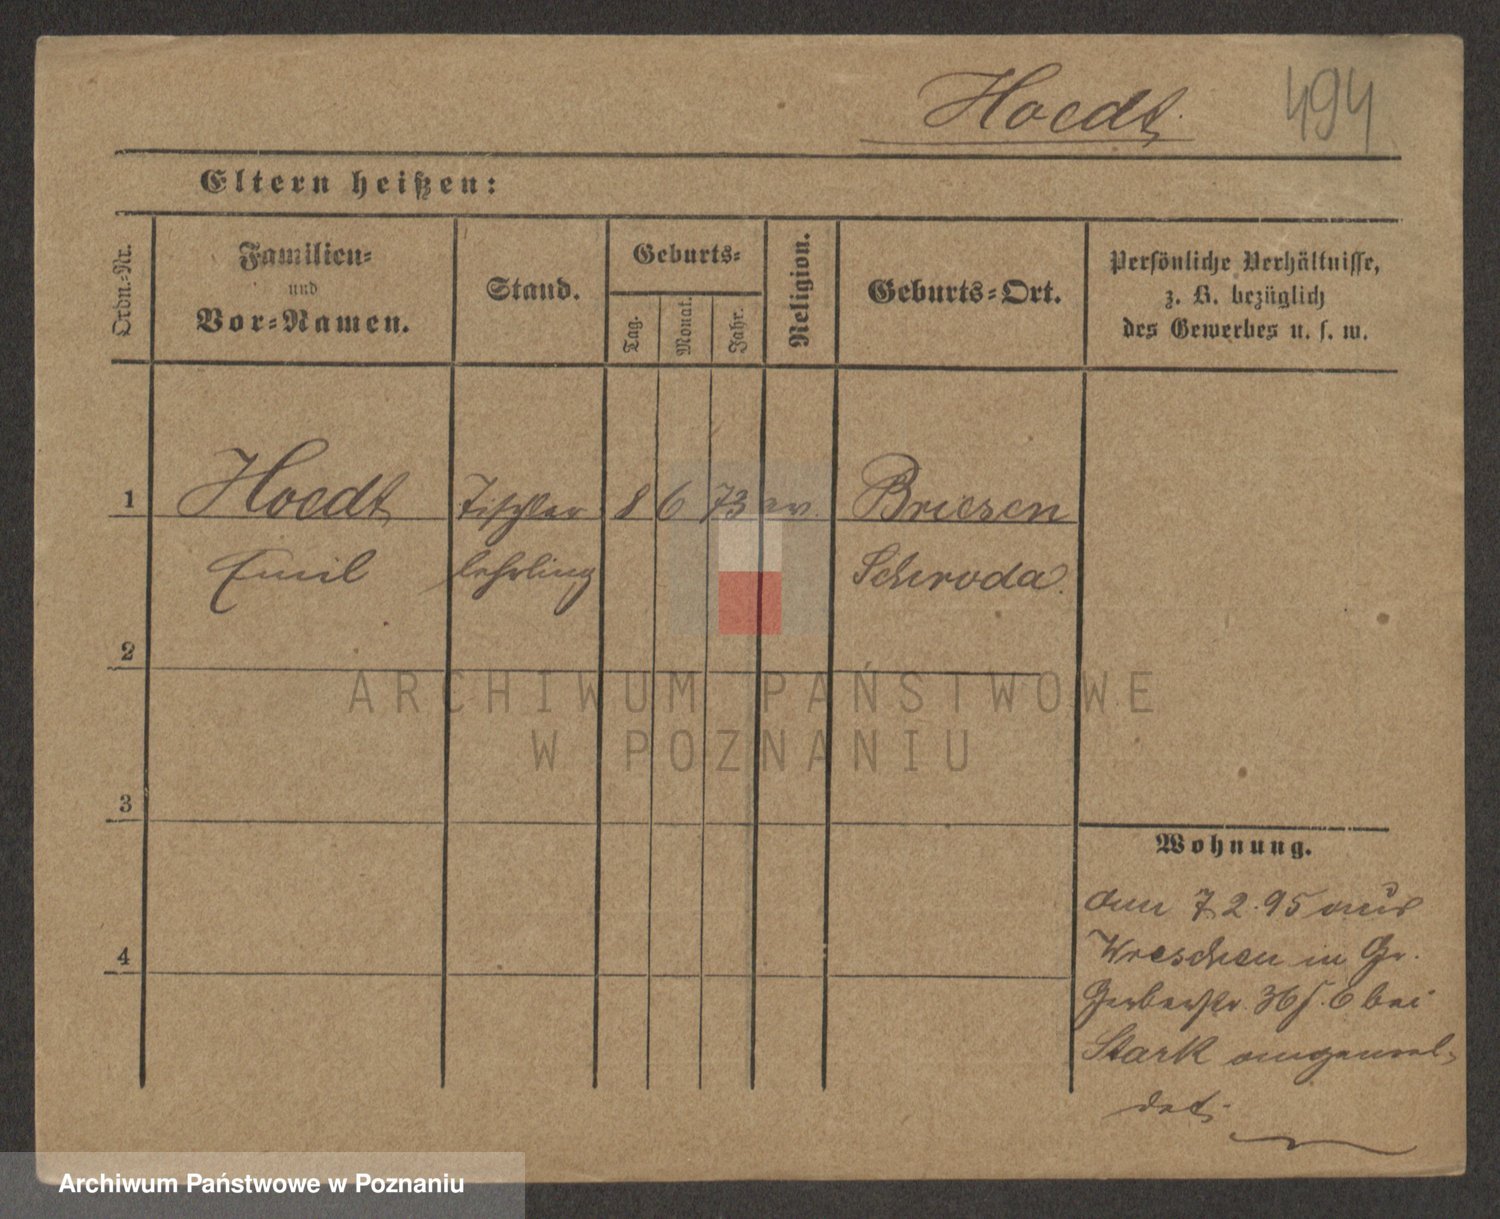 Hoedt
494
Eltern heißen:
Ordn.-Nr.
Familien-
und
Vor-Namen.
Stand.
Geburts-
Tag.
Monat.
Jahr.
Religion.
Geburts-Ort.
Persönliche Verhältnisse,
z. B. bezüglich
des Gewerbes u. s. w.
1 Hoedt Tischler 8 6 73 ev Briesen
Emil lehrling Schroda.
2
ARCHIWUM PAŃSTWOWE
W POZNANIU
3
4
Wohnung.
am 7 2. 95 aus
Wreschen in Gr.
Gerberstr. 36 bei
Stark angemel-
det.
Archiwum Państwowe w Poznaniu